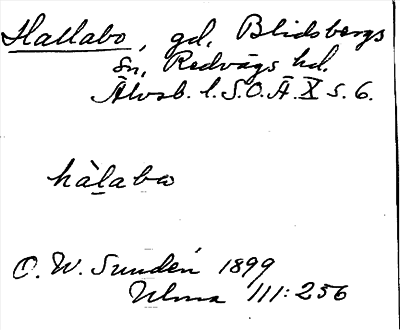 Hallabo, gd, Blidsbergs
sn, Redvägs hd.
Älvsb. l. S.O.Ä. X s. 6.
hàlabω
O. W. Sundén 1899
Ulma 111:256